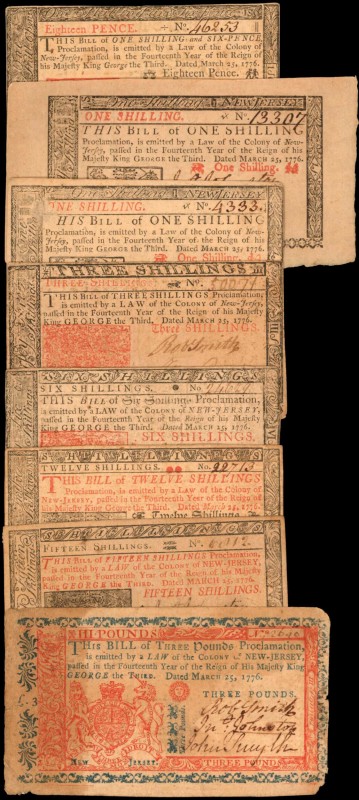 Eighteen PENCE. No. 46253
THIS Bill of ONE SHILLING and SIX-PENCE
Proclamation, is emitted by a Law of the Colony of
New-Jersey, passed in the Fourteenth Year of the Reign of
his Majesty King George the Third. Dated March 25, 1776.
Eighteen Pence.
NEW-JERSEY
ONE SHILLING. No. 13307
THIS Bill of ONE SHILLING
Proclamation, is emitted by a Law of the Colony of New-
Jersey, passed in the Fourteenth Year of the Reign of his
Majesty King GEORGE the Third. Dated MARCH 25, 1776.
One Shilling.
NEW-JERSEY
ONE SHILLING. No. 4333
HIS BILL of ONE SHILLING
Proclamation, is emitted by a Law of the Colony of New-
Jersey, passed in the Fourteenth Year of the Reign of his
Majesty King GEORGE the Third. Dated MARCH 25, 1776.
One Shilling.
THREE SHILLINGS
No.
THIS Bill of THREE SHILLINGS Proclamation,
is emitted by a Law of the Colony of New-Jersey,
passed in the Fourteenth Year of the Reign of his Majesty
King GEORGE the Third. Dated MARCH 25, 1776.
Three SHILLINGS
Rob Smith
SIX SHILLINGS
SIX SHILLINGS. No.
THIS Bill of Six Shillings Proclamation,
is emitted by a LAW of the COLONY of NEW-JERSEY,
passed in the Fourteenth Year of the Reign of his Majesty
King GEORGE the Third. Dated MARCH 25, 1776.
SIX SHILLINGS.
SHILLINGS
TWELVE SHILLINGS. No. 22713
THIS Bill of TWELVE SHILLINGS
Proclamation, is emitted by a LAW of the Colony of NEW-
JERSEY, passed in the Fourteenth Year of the Reign of
his Majesty King George the Third. Dated March 25, 1776.
Twelve Shillings.
FIFTEEN SHILLINGS. No.
THIS Bill of FIFTEEN SHILLINGS Proclamation,
is emitted by a LAW of the COLONY of NEW-JERSEY,
passed in the Fourteenth Year of the Reign of his Majesty
King GEORGE the Third. Dated MARCH 25, 1776.
FIFTEEN SHILLINGS.
III POUNDS
THIS BILL of THREE Pounds Proclamation,
is emitted by a LAW of the COLONY of NEW-JERSEY,
passed in the Fourteenth Year of the Reign of His Majesty King
GEORGE the THIRD. Dated March 25, 1776.
THREE POUNDS.
Rob Smith
Jno Johnston
John Smyth
NEW JERSEY.
THREE POUNDS